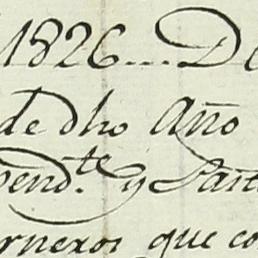 1826....De
de dho Año
pend.te y Part
rneros que co